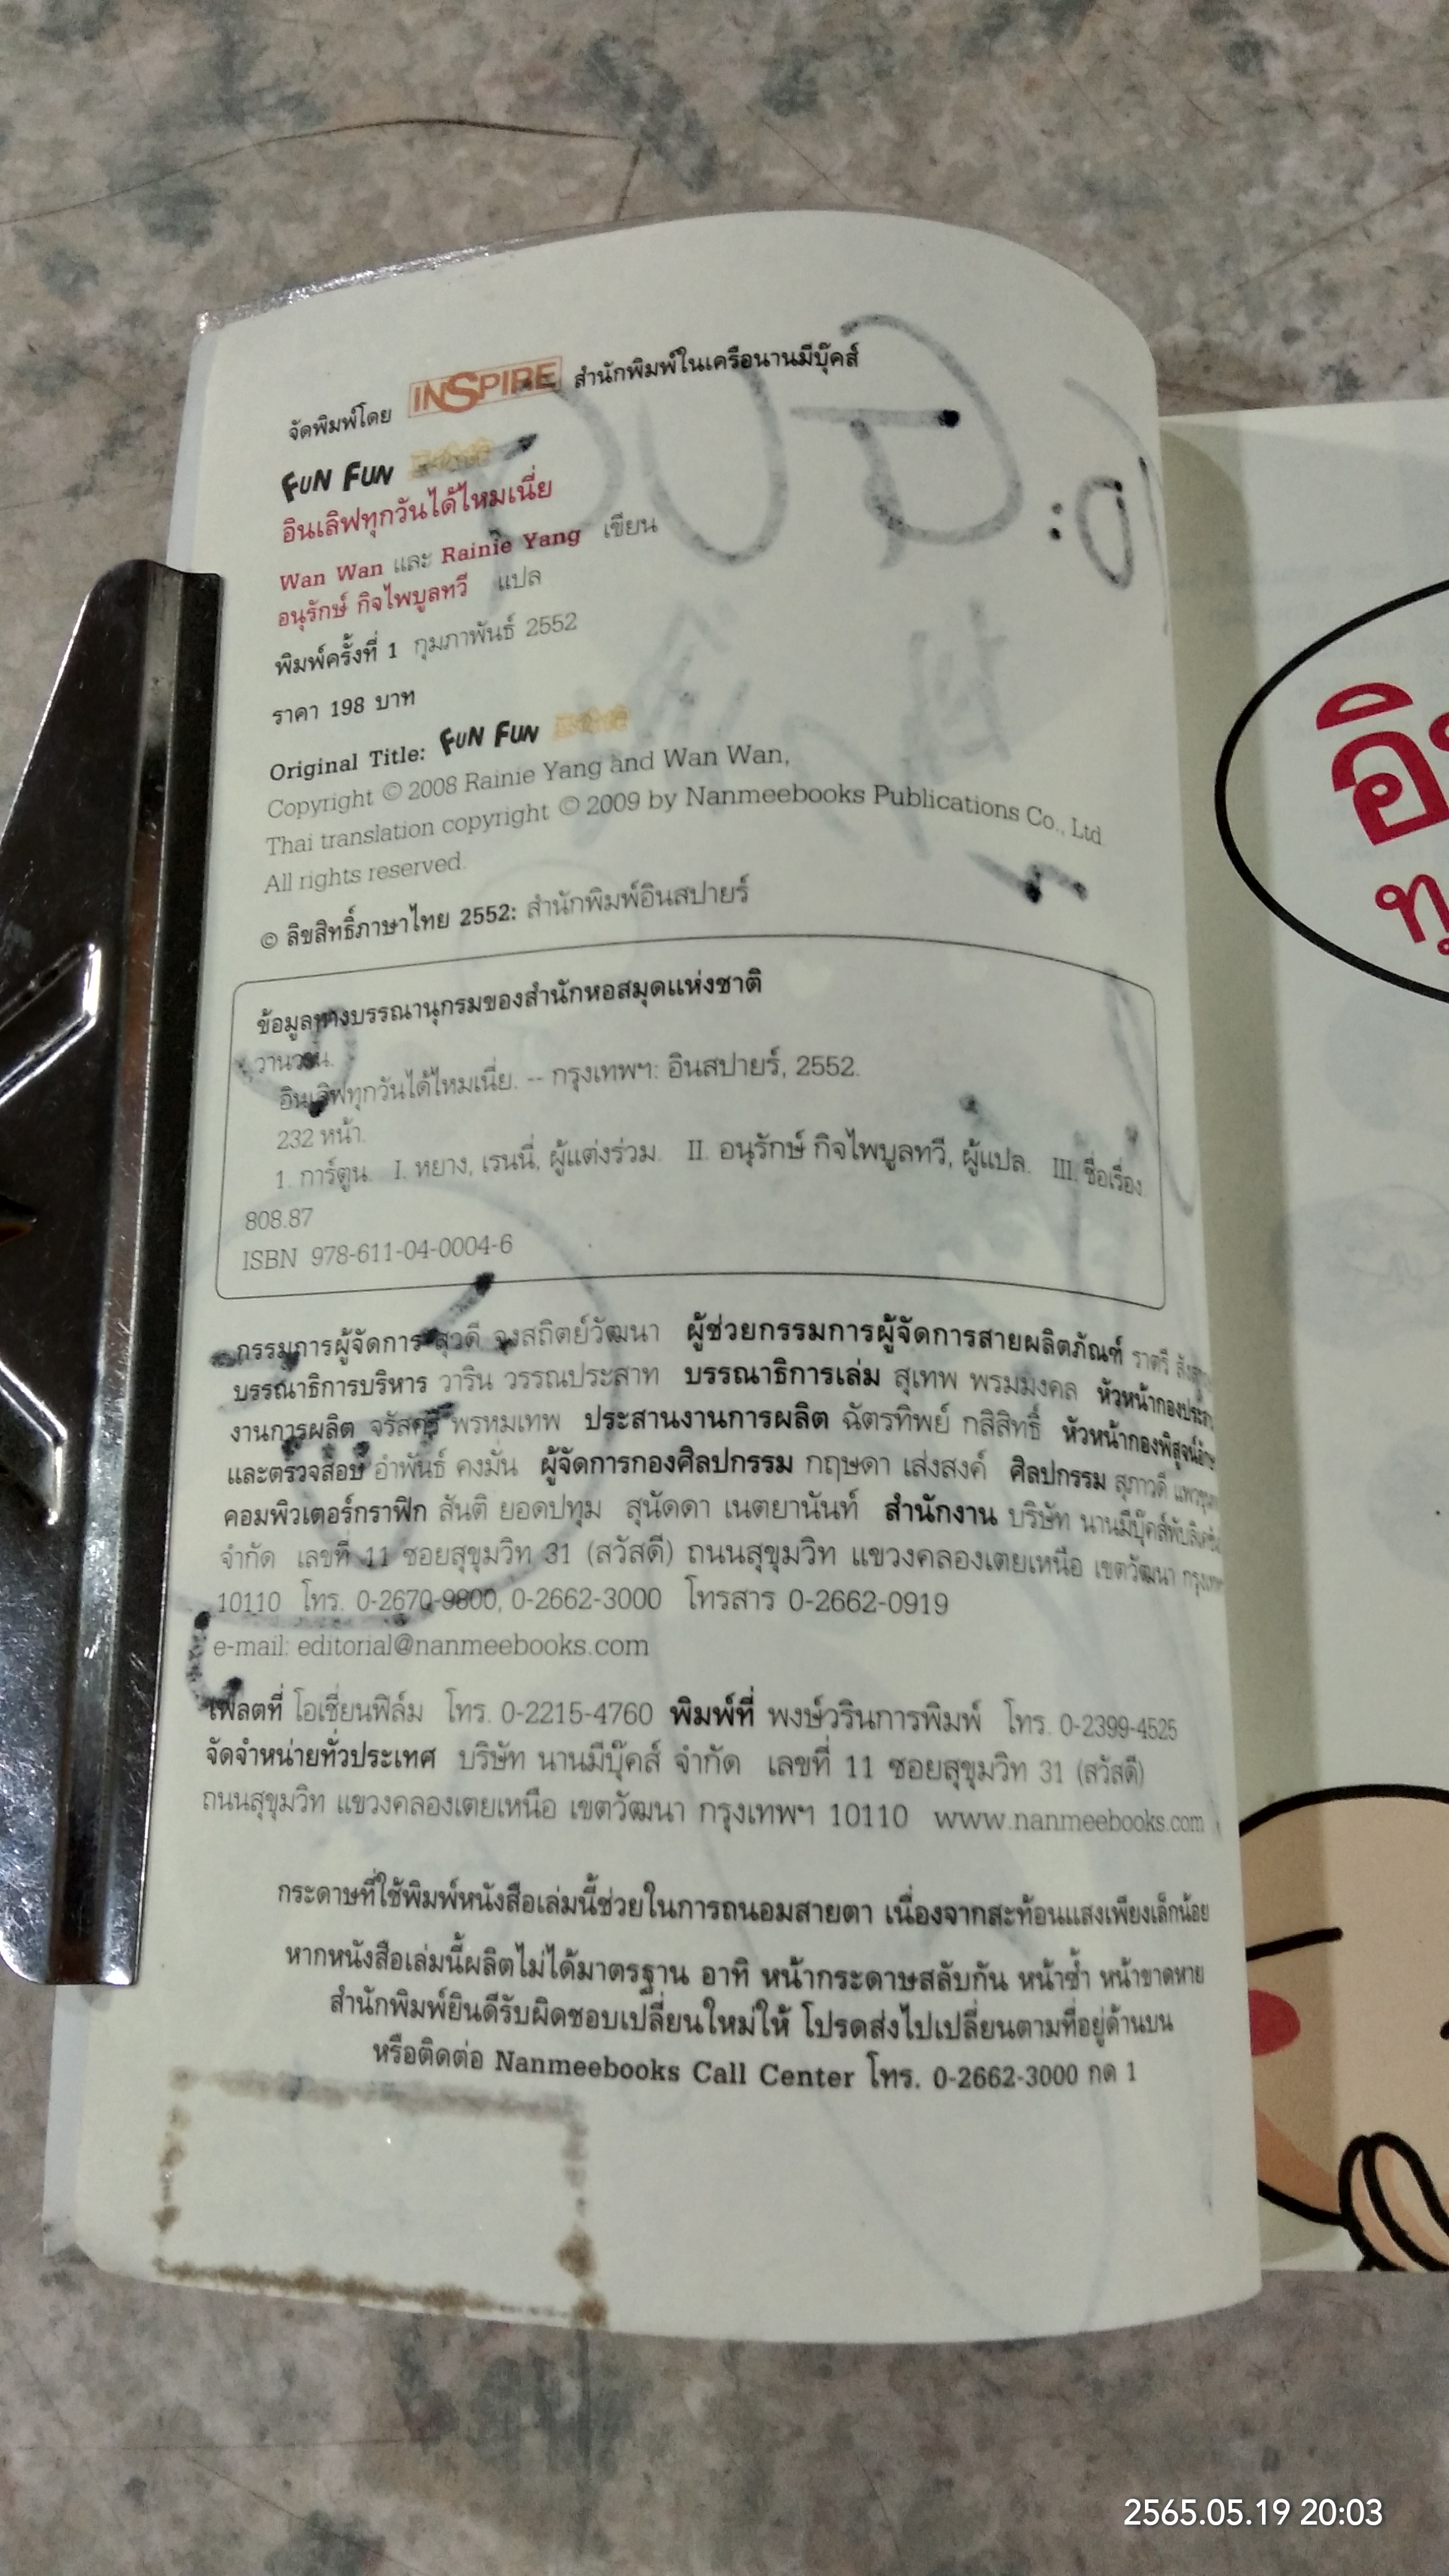 จัดพิมพ์โดย INSPIRE สำนักพิมพ์ในเครือนานมีบุ๊คส์
FUN FUN
อินเลิฟทุกวันได้ไหมเนี่ย
Wan Wan และ Rainie Yang เขียน
อนุรักษ์ กิจไพบูลทวี แปล
พิมพ์ครั้งที่ 1 กุมภาพันธ์ 2552
ราคา 198 บาท
Original Title: FUN FUN
Copyright © 2008 Rainie Yang and Wan Wan,
Thai translation copyright © 2009 by Nanmeebooks Publications Co., Ltd.
All rights reserved.
© ลิขสิทธิ์ภาษาไทย 2552: สำนักพิมพ์อินสปายร์
ข้อมูลทางบรรณานุกรมของสำนักหอสมุดแห่งชาติ
วานวาน.
อินเลิฟทุกวันได้ไหมเนี่ย. -- กรุงเทพฯ: อินสปายร์, 2552.
232 หน้า.
1. การ์ตูน. I. หยาง, เรนนี่, ผู้แต่งร่วม. II. อนุรักษ์ กิจไพบูลทวี, ผู้แปล. III. ชื่อเรื่อง.
808.87
ISBN 978-611-04-0004-6
กรรมการผู้จัดการ สุวดี จงสถิตย์วัฒนา ผู้ช่วยกรรมการผู้จัดการสายผลิตภัณฑ์ ราตรี
บรรณาธิการบริหาร วาริน วรรณประสาท บรรณาธิการเล่ม สุเทพ พรมมงคล หัวหน้ากองประสาน
งานการผลิต จรัสศรี พรหมเทพ ประสานงานการผลิต ฉัตรทิพย์ กสิสิทธิ์ หัวหน้ากองพิสูจน์อักษร
และตรวจสอบ อำพันธ์ คงมั่น ผู้จัดการกองศิลปกรรม กฤษดา เส่งสงค์ ศิลปกรรม สุภาวดี
คอมพิวเตอร์กราฟิก สันติ ยอดปทุม สุนัดดา เนตยานันท์ สำนักงาน บริษัท นานมีบุ๊คส์พับลิเคชั่นส์
จำกัด เลขที่ 11 ซอยสุขุมวิท 31 (สวัสดี) ถนนสุขุมวิท แขวงคลองเตยเหนือ เขตวัฒนา กรุงเทพฯ
10110 โทร. 0-2670-9800, 0-2662-3000 โทรสาร 0-2662-0919
e-mail: editorial@nanmeebooks.com
เพลตที่ โอเชี่ยนฟิล์ม โทร. 0-2215-4760 พิมพ์ที่ พงษ์วรินการพิมพ์ โทร. 0-2399-4525
จัดจำหน่ายทั่วประเทศ บริษัท นานมีบุ๊คส์ จำกัด เลขที่ 11 ซอยสุขุมวิท 31 (สวัสดี)
ถนนสุขุมวิท แขวงคลองเตยเหนือ เขตวัฒนา กรุงเทพฯ 10110 www.nanmeebooks.com
กระดาษที่ใช้พิมพ์หนังสือเล่มนี้ช่วยในการถนอมสายตา เนื่องจากสะท้อนแสงเพียงเล็กน้อย
หากหนังสือเล่มนี้ผลิตไม่ได้มาตรฐาน อาทิ หน้ากระดาษสลับกัน หน้าซ้ำ หน้าขาดหาย
สำนักพิมพ์ยินดีรับผิดชอบเปลี่ยนใหม่ให้ โปรดส่งไปเปลี่ยนตามที่อยู่ด้านบน
หรือติดต่อ Nanmeebooks Call Center โทร. 0-2662-3000 กด 1
2565.05.19 20:03